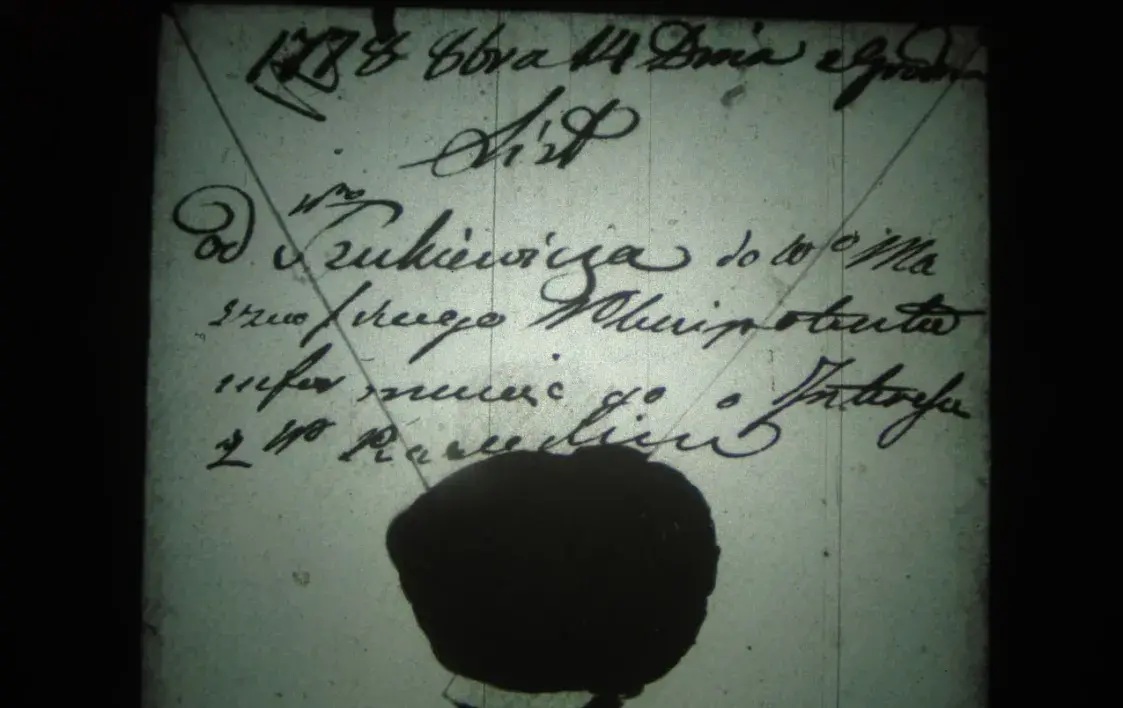 1778 8bra 14 Dnia z Grodna
List
od Wgo Szukiewicza do Wo Ma
szewskiego Plenipotenta
informuiąc go o Interesa
z W